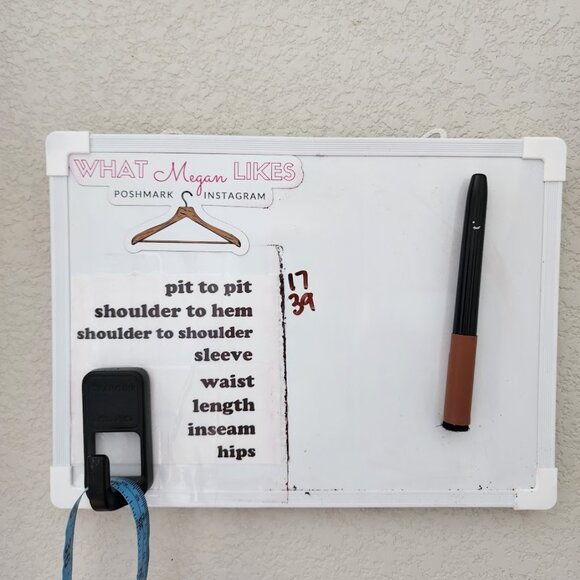 WHAT Megan LIKES
POSHMARK INSTAGRAM
pit to pit 17
shoulder to hem 39
shoulder to shoulder
sleeve
waist
length
inseam
hips